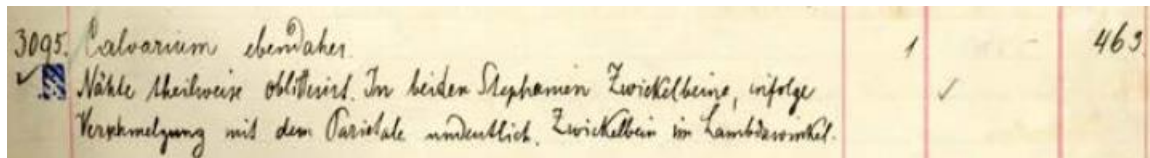 3095. Calvarium ebendaher. 1 463.
Nähte theilweise oblitterirt. In beiden Stephanien Zwickelbeine, infolge
Verschmelzung mit dem Parietale undeutlich. Zwickelbein im Lambdawinkel.